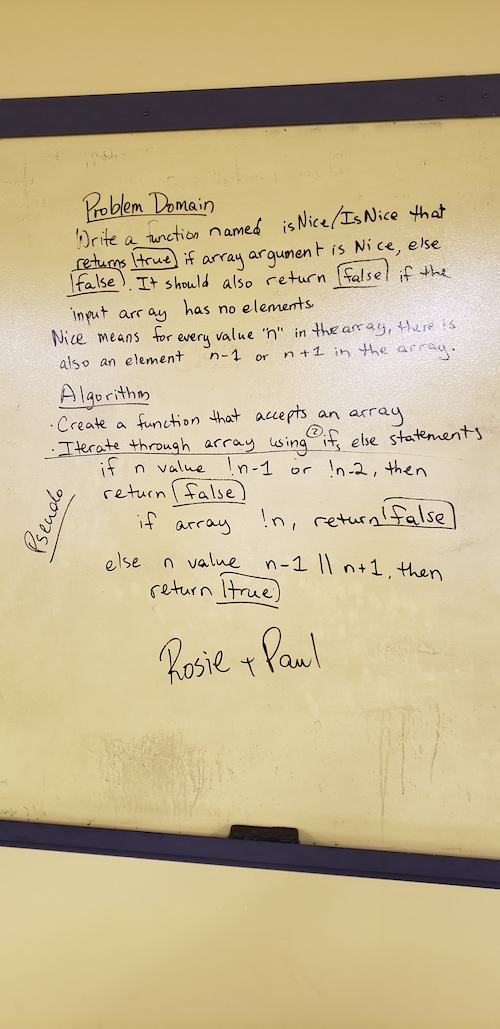 Problem Domain
Write a function named isNice/IsNice that
returns true if array argument is Nice, else
false. It should also return false if the
input array has no elements.
Nice means for every value "n" in the array, there is
also an element n-1 or n+1 in the array.
Algorithm
· Create a function that accepts an array
· Iterate through array using 2 ifs, else statements
if n value !n-1 or !n-2, then
return false
Pseudo
if array !n, return false
else n value n-1 || n+1, then
return true
Rosie + Paul